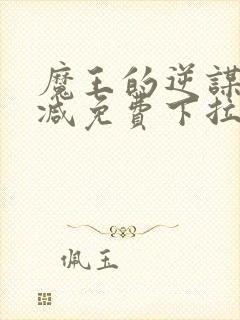 魔王的逆謀
减免費下拉
佩玉